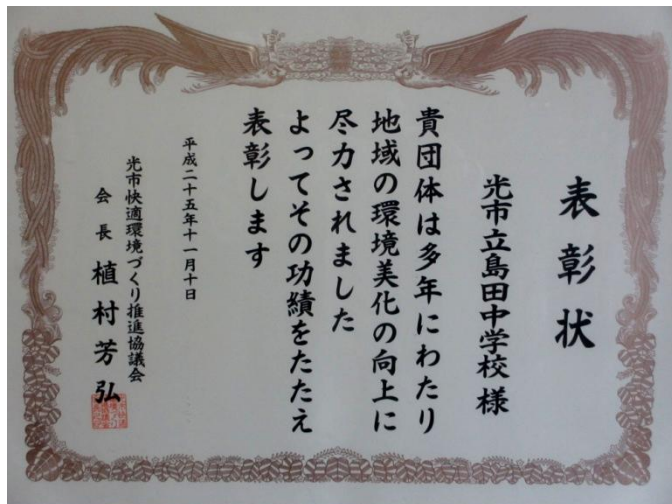 表彰状
光市立島田中学校様
貴団体は多年にわたり
地域の環境美化の向上に
尽力されました
よってその功績をたたえ
表彰します
平成二十五年十一月十日
光市快適環境づくり推進協議会
会長 植村芳弘